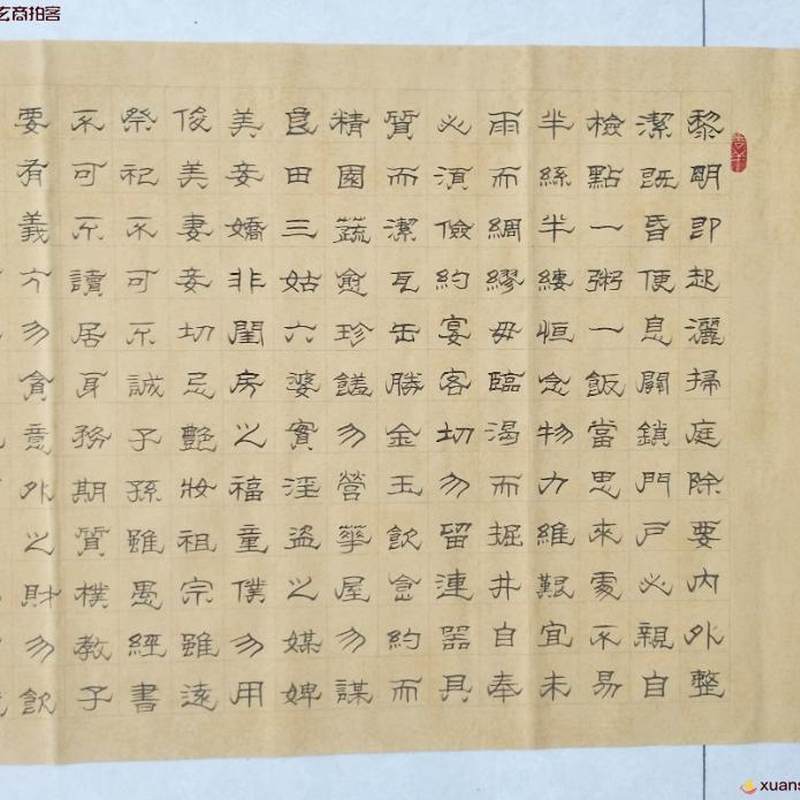 玄商拍客
黎明即起灑掃庭除要內外整
潔既昏便息關鎖門戶必親自
檢點一粥一飯當思來處不易
半絲半縷恒念物力維艱宜未
雨而綢繆毋臨渴而掘井自奉
必須儉約宴客切勿留連器具
質而潔瓦缶勝金玉飲食約而
精園蔬愈珍饈勿營華屋勿謀
良田三姑六婆實淫盜之媒婢
美妾嬌非閨房之福童僕勿用
俊美妻妾切忌艷妝祖宗雖遠
祭祀不可不誠子孫雖愚經書
不可不讀居身務期質樸教子
要有義方勿貪意外之財勿飲
xuans